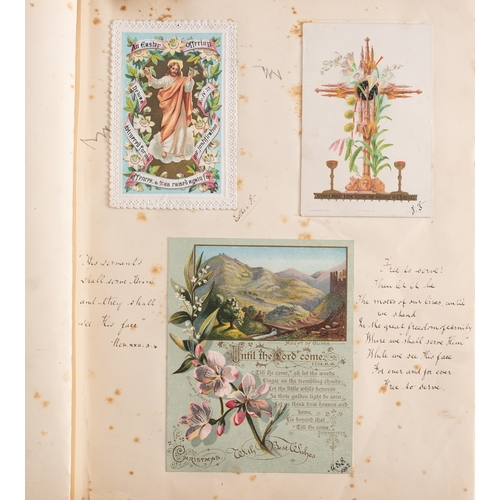 An Easter Offering
delivered for
offences, & was raised again for
"His servants
shall serve Him
and they shall
see His face"
Free to serve!
Then let it be
The motto of our lives, until
we stand
In the great freedom of eternity
Where we shall serve Him"
While we see His face
For ever and for ever
Free to serve.
Until the Lord come.
"Till He come," oh let the words
Linger on the trembling chords
Let the little while between
In their golden light be seen
Let us think how heaven and
home,
Lie beyond that
"Till He come."
Christmas
With Best Wishes